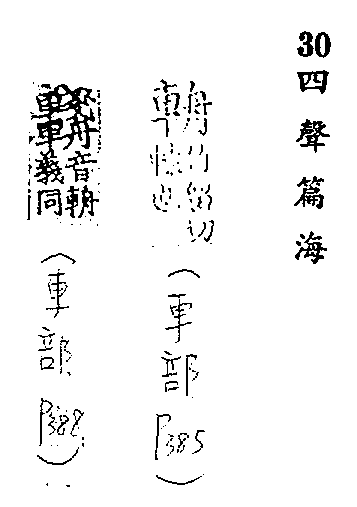 30四聲篇海
輈竹留切
(車部P385)
音輈
義同
(車部P388)